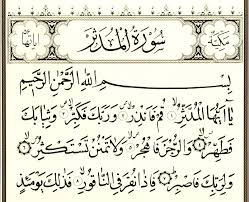 مكية سورة المدثر آياتها
بِسْمِ اللَّهِ الرَّحْمَٰنِ الرَّحِيمِ
يَا أَيُّهَا الْمُدَّثِّرُ ۝ قُمْ فَأَنْذِرْ ۝ وَرَبَّكَ فَكَبِّرْ ۝ وَثِيَابَكَ
فَطَهِّرْ ۝ وَالرُّجْزَ فَاهْجُرْ ۝ وَلَا تَمْنُنْ تَسْتَكْثِرُ ۝
وَلِرَبِّكَ فَاصْبِرْ ۝ فَإِذَا نُقِرَ فِي النَّاقُورِ ۝ فَذَٰلِكَ يَوْمَئِذٍ